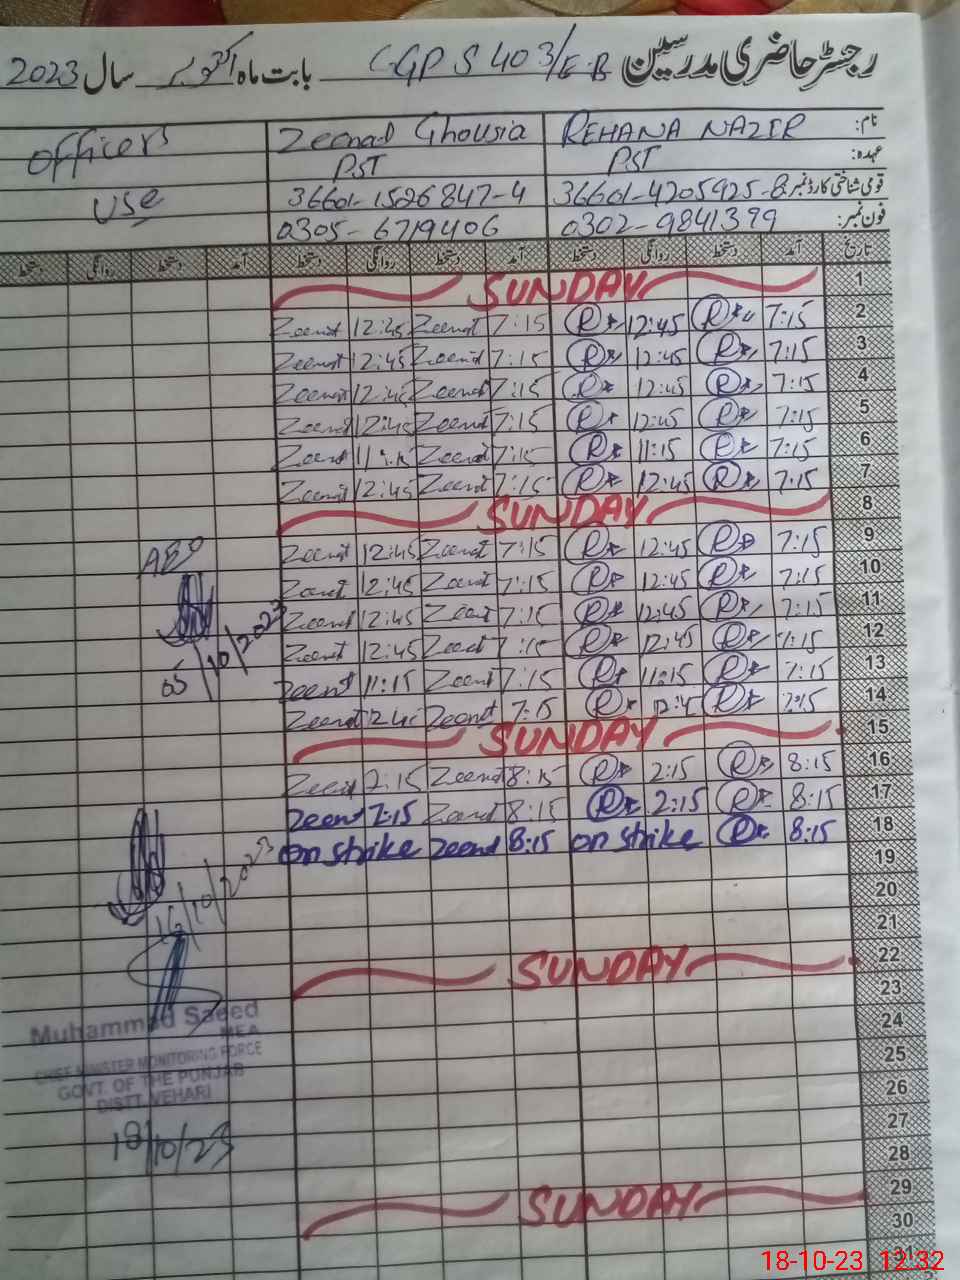 رجسٹر حاضری مدرسین GGPS 403/E.B بابت ماہ اکتوبر سال 2023
نام: REHANA NAZIR Zeenat Ghousia officers
عہدہ: PST PST
قومی شناختی کارڈ نمبر: 36601-4205925-8 36601-1526847-4 use
فون نمبر: 0302-9841399 0305-6719406
تاریخ آمد دستخط روانگی دستخط آمد دستخط روانگی دستخط آمد دستخط روانگی دستخط
1 SUNDAY
2 7:15 R 12:45 R 7:15 Zeenat 12:45 Zeenat
3 7:15 R 12:45 R 7:15 Zeenat 12:45 Zeenat
4 7:15 R 12:45 R 7:15 Zeenat 12:45 Zeenat
5 7:15 R 12:45 R 7:15 Zeenat 12:45 Zeenat
6 7:15 R 11:15 R 7:15 Zeenat 11:15 Zeenat
7 7:15 R 12:45 R 7:15 Zeenat 12:45 Zeenat
8 SUNDAY
9 7:15 R 12:45 R 7:15 Zeenat 12:45 Zeenat
10 7:15 R 12:45 R 7:15 Zeenat 12:45 Zeenat
11 7:15 R 12:45 R 7:15 Zeenat 12:45 Zeenat
12 7:15 R 12:45 R 7:15 Zeenat 12:45 Zeenat
13 7:15 R 11:15 R 7:15 Zeenat 11:15 Zeenat
14 7:15 R R 7:15 Zeenat Zeenat
15 SUNDAY
16 8:15 R 2:15 R 8:15 Zeenat 2:15 Zeenat
17 8:15 R 2:15 R 8:15 Zeenat 2:15 Zeenat
18 8:15 R on strike 8:15 Zeenat on strike
19
20
21
22 SUNDAY
23
24
25
26
27
28
29 SUNDAY
30
31
AEO
05/10/2023
/10/2023
Muhammad Saeed
MEA
CHIEF MINISTER MONITORING FORCE
GOVT. OF THE PUNJAB
DISTT. VEHARI
18/10/23
18-10-23 12:32